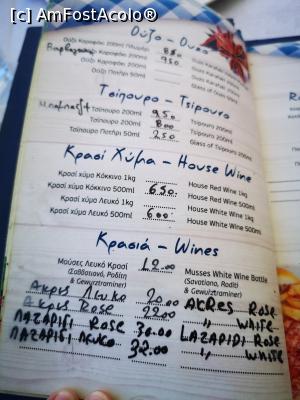 (c) AmFostAcolo®
Ούζο - Ouzo
Ούζο Καραφάκι 200ml 8.50
Ούζο Καραφάκι 200ml 9.50
Ούζο Ποτήρι 50ml
Glass of Ouzo
Τσίπουρο - Tsipouro
Τσίπουρο 200ml 9.50 Tsipouro 200ml
Τσίπουρο 200ml 8.00 Tsipouro 200ml
Τσίπουρο Ποτήρι 50ml 2.50 Glass of Tsipouro 50ml
Κρασί Χύμα - House Wine
Κρασί χύμα Κόκκινο 1kg House Red Wine 1kg
Κρασί χύμα Κόκκινο 500ml 6.50 House Red Wine 500ml
Κρασί χύμα Λευκό 1kg House White Wine 1kg
Κρασί χύμα Λευκό 500ml 6.00 House White Wine 500ml
Κρασιά - Wines
Μούσες Λευκό Κρασί 12.00 Musses White Wine Bottle
(Σαββατιανό, Ροδίτη (Savatiano, Roditi
& Gewurztraminer) & Gewurztraminer)
Ακρες Λευκο 20.00 ACRES ROSE
Ακρες Rose 22.00 " WHITE
ΛΑΖΑΡΙΔΙ ROSE 30.00 LAZARIDI ROSE
ΛΑΖΑΡΙΔΙ Λευκο 32.00 " WHITE